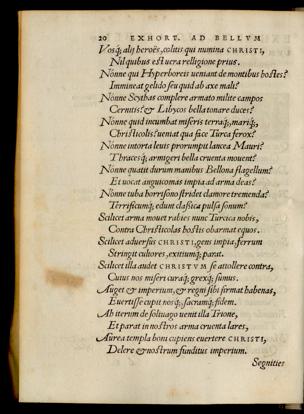 20 EXHORT. AD BELLVM
Vosq́; alij heroës, colitis qui numina CHRISTI,
Nil quibus est uera relligione prius.
Nónne qui Hyperboreis ueniant de montibus hostes?
Immineat gelido seu quid ab axe mali?
Nónne Scythas complere armato milite campos
Cernitis? & Libycos bella tonare duces?
Nónne quid incumbat miseris terraq́;, mariq́;,
Christicolis? ueniat qua sice Turca ferox?
Nónne intorta leuis prorumpit lancea Mauri?
Thracesq́; armigeri bella cruenta mouent?
Nónne quatit durum manibus Bellona flagellum?
Et uocat anguicomas impia ad arma deas?
Nónne tuba horrisono stridet clamore tremenda?
Terrificumq́; edunt classica pulsa sonum?
Scilicet arma mouet rabies nunc Turcica nobis,
Contra Christicolas hostis obarmat equos.
Scilicet aduersus CHRISTI, gens impia, ferrum
Stringit cultores, exitiumq́; parat.
Scilicet illa audet CHRISTVM se attollere contra,
Cuius nos miseri curaq́;, grexq́; sumus.
Auget & imperium, & regni sibi firmat habenas,
Euertisse cupit nosq́;, sacramq́; fidem.
Ab iterum de soliuago uenit illa Trione,
Et parat in nostros arma cruenta lares,
Aurea templa boni cupiens euertere CHRISTI,
Delere & nostrum funditus imperium.
Segnities